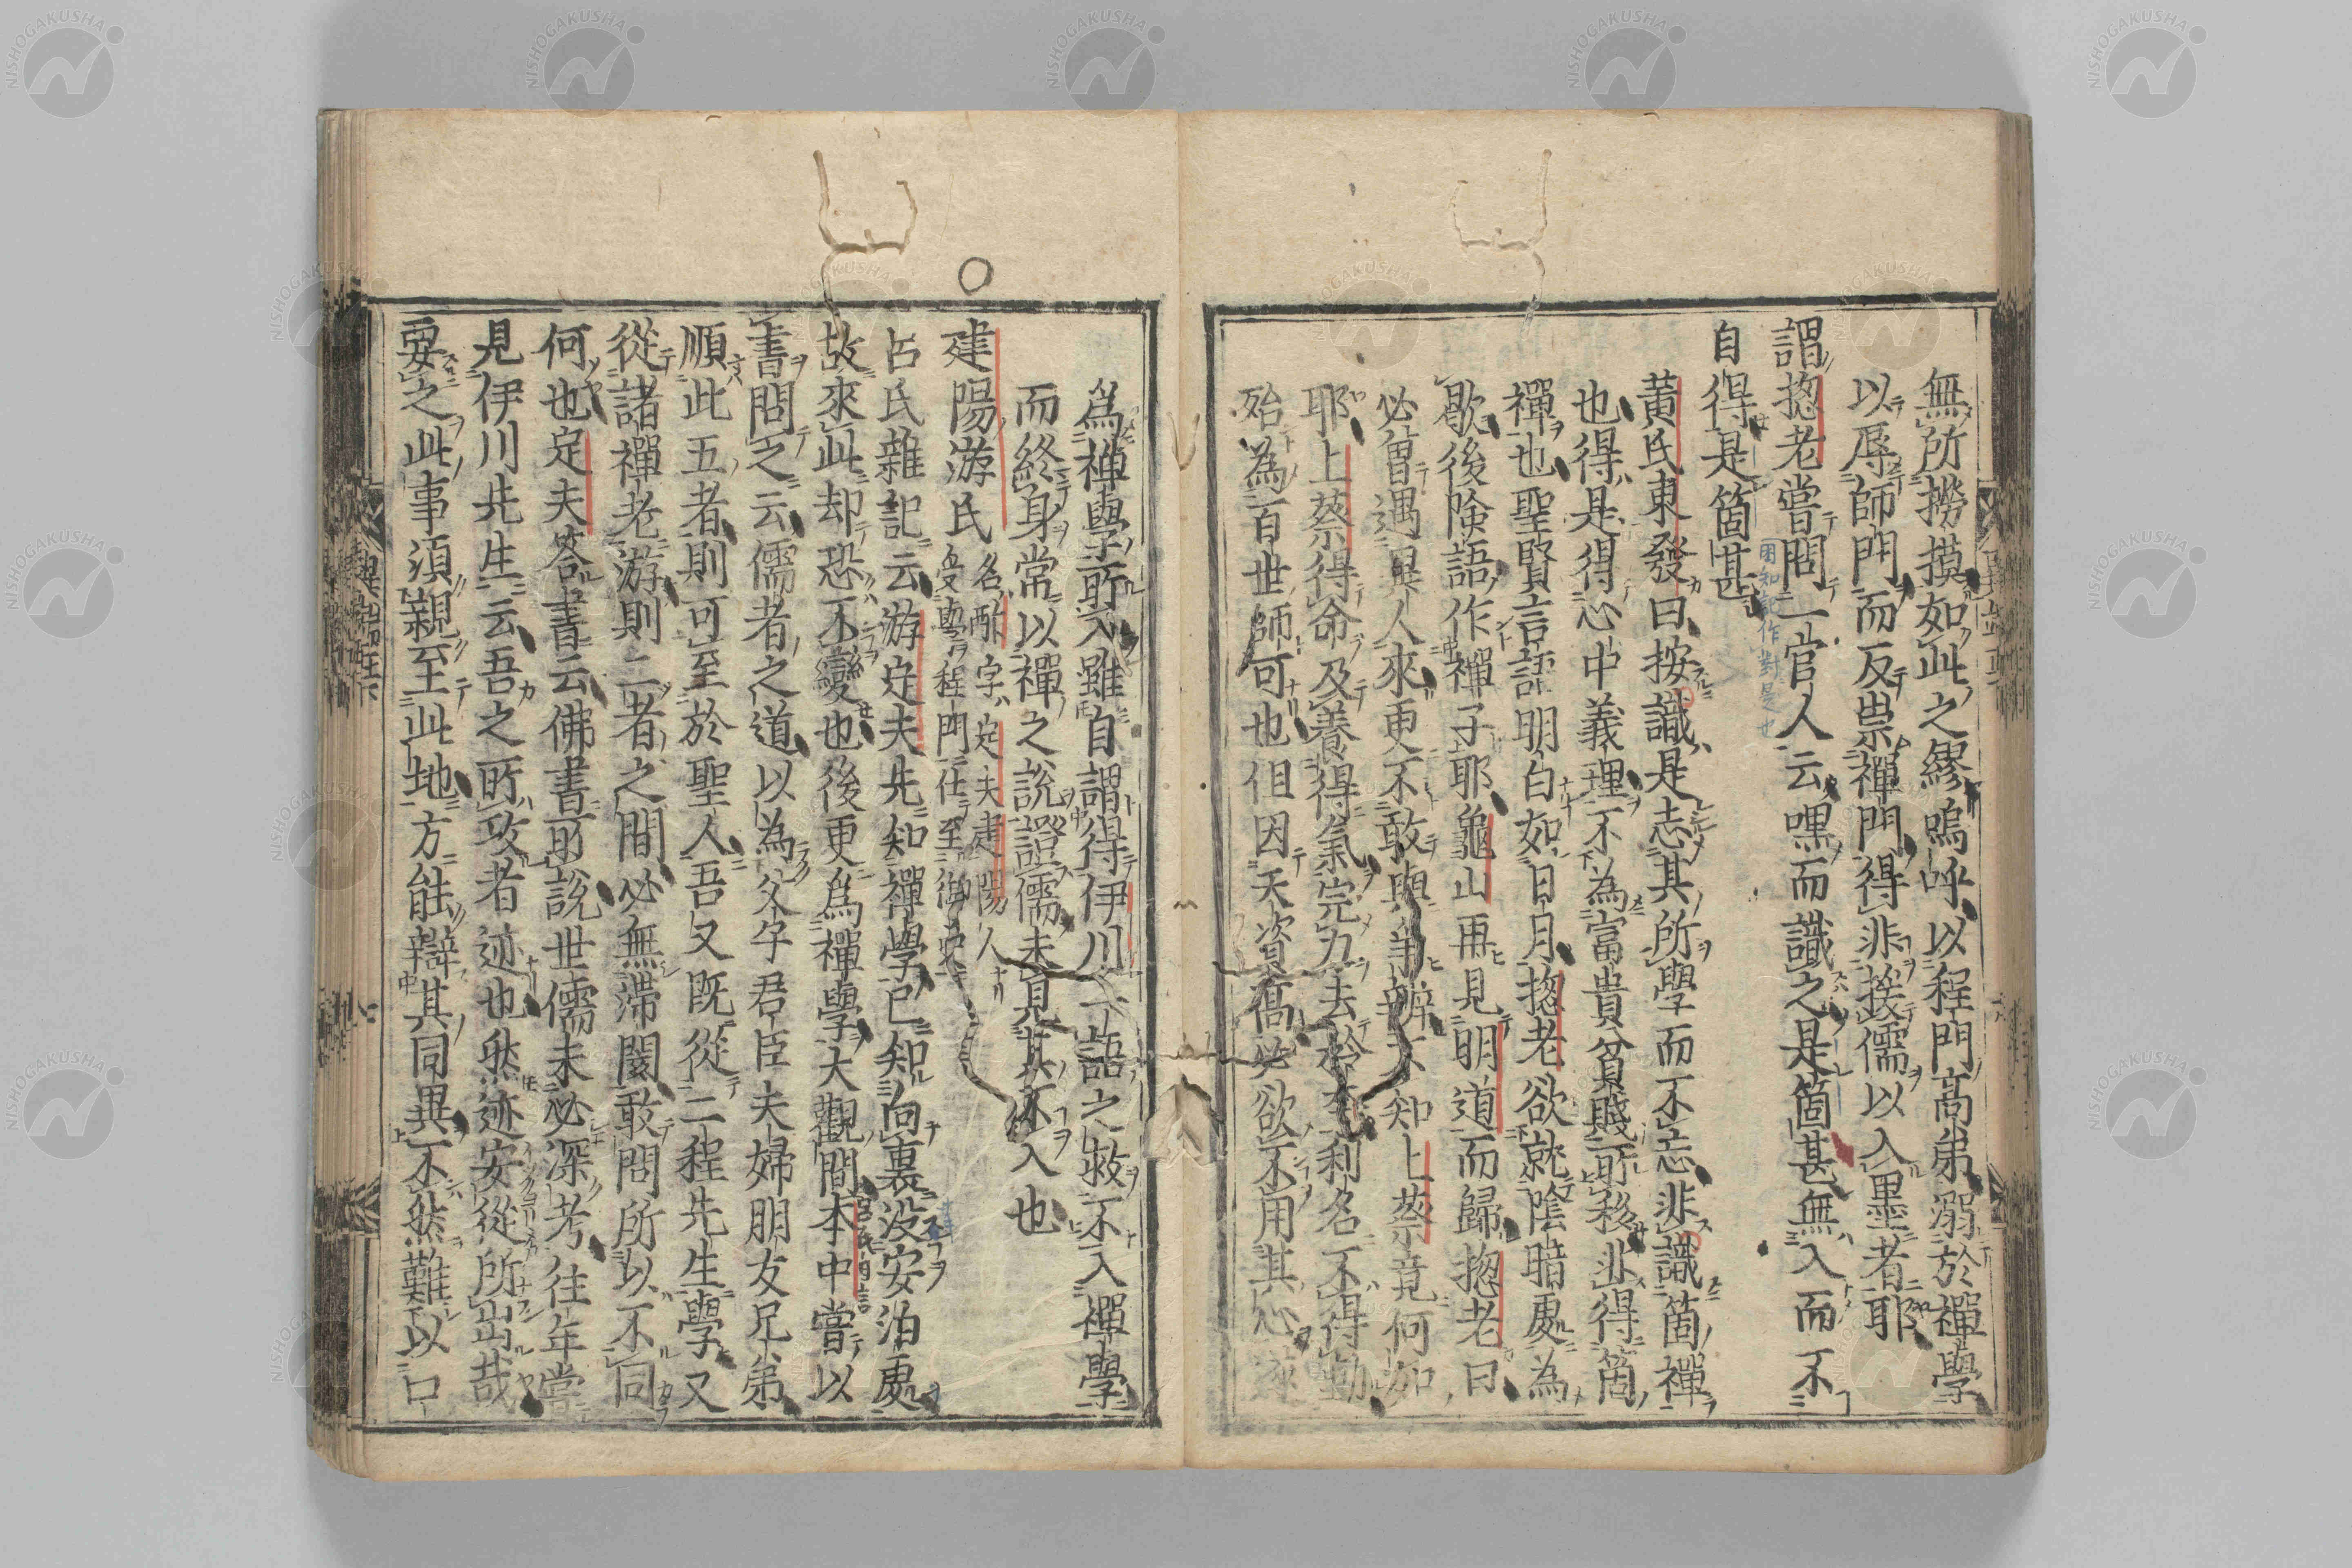 無所撈摸如此之繆嗚呼以程門高弟溺於禪學
以辱師門而反祟禪門得非援儒以入墨者耶
謂揔老嘗問一官人云嘿而識之是箇甚無入而不
自得是箇甚
黃氏東發曰按識是志其所學而不忘非識箇禪
也得是得心中義理不為富貴貧賤所移非得箇
禪也聖賢言語明白如日月揔老欲就陰暗處為
歇後険語作禪子耶龜山再見明道而歸揔老曰
必曾遇異人來更不敢與爭辨不知上蔡竟何如
耶上蔡得命及養得氣完力去矜去利名不得動
殆為百世師可也但因天資高必欲不用其心遂
為禪學所入雖自謂得伊川一語之救不入禪學
而終身常以禪之說證儒未見其不入也
建陽游氏
名酢字定夫建陽人
受學程門仕至御史
呂氏雜記云游定夫先知禪學已知向裏没安泊處
故來此却恐不變也後更爲禪學大觀間本中嘗以
書問之云儒者之道以為父子君臣夫婦朋友兄弟
順此五者則可至於聖人吾又既從二程先生學又
從諸禪老游則二者之間必無滯閡敢問所以不同
何也定夫答書云佛書所說世儒未必深考往年嘗
見伊川先生云吾之所攻者迹也然迹安從所出哉
要之此事須親至此地方能辯其同異不然難以口